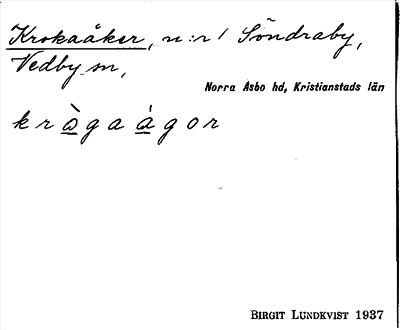 Krokaåker, n:r 1 Söndraby,
Vedby sn,
Norra Åsbo hd, Kristianstads län
kràgaágor
BIRGIT LUNDKVIST 1937